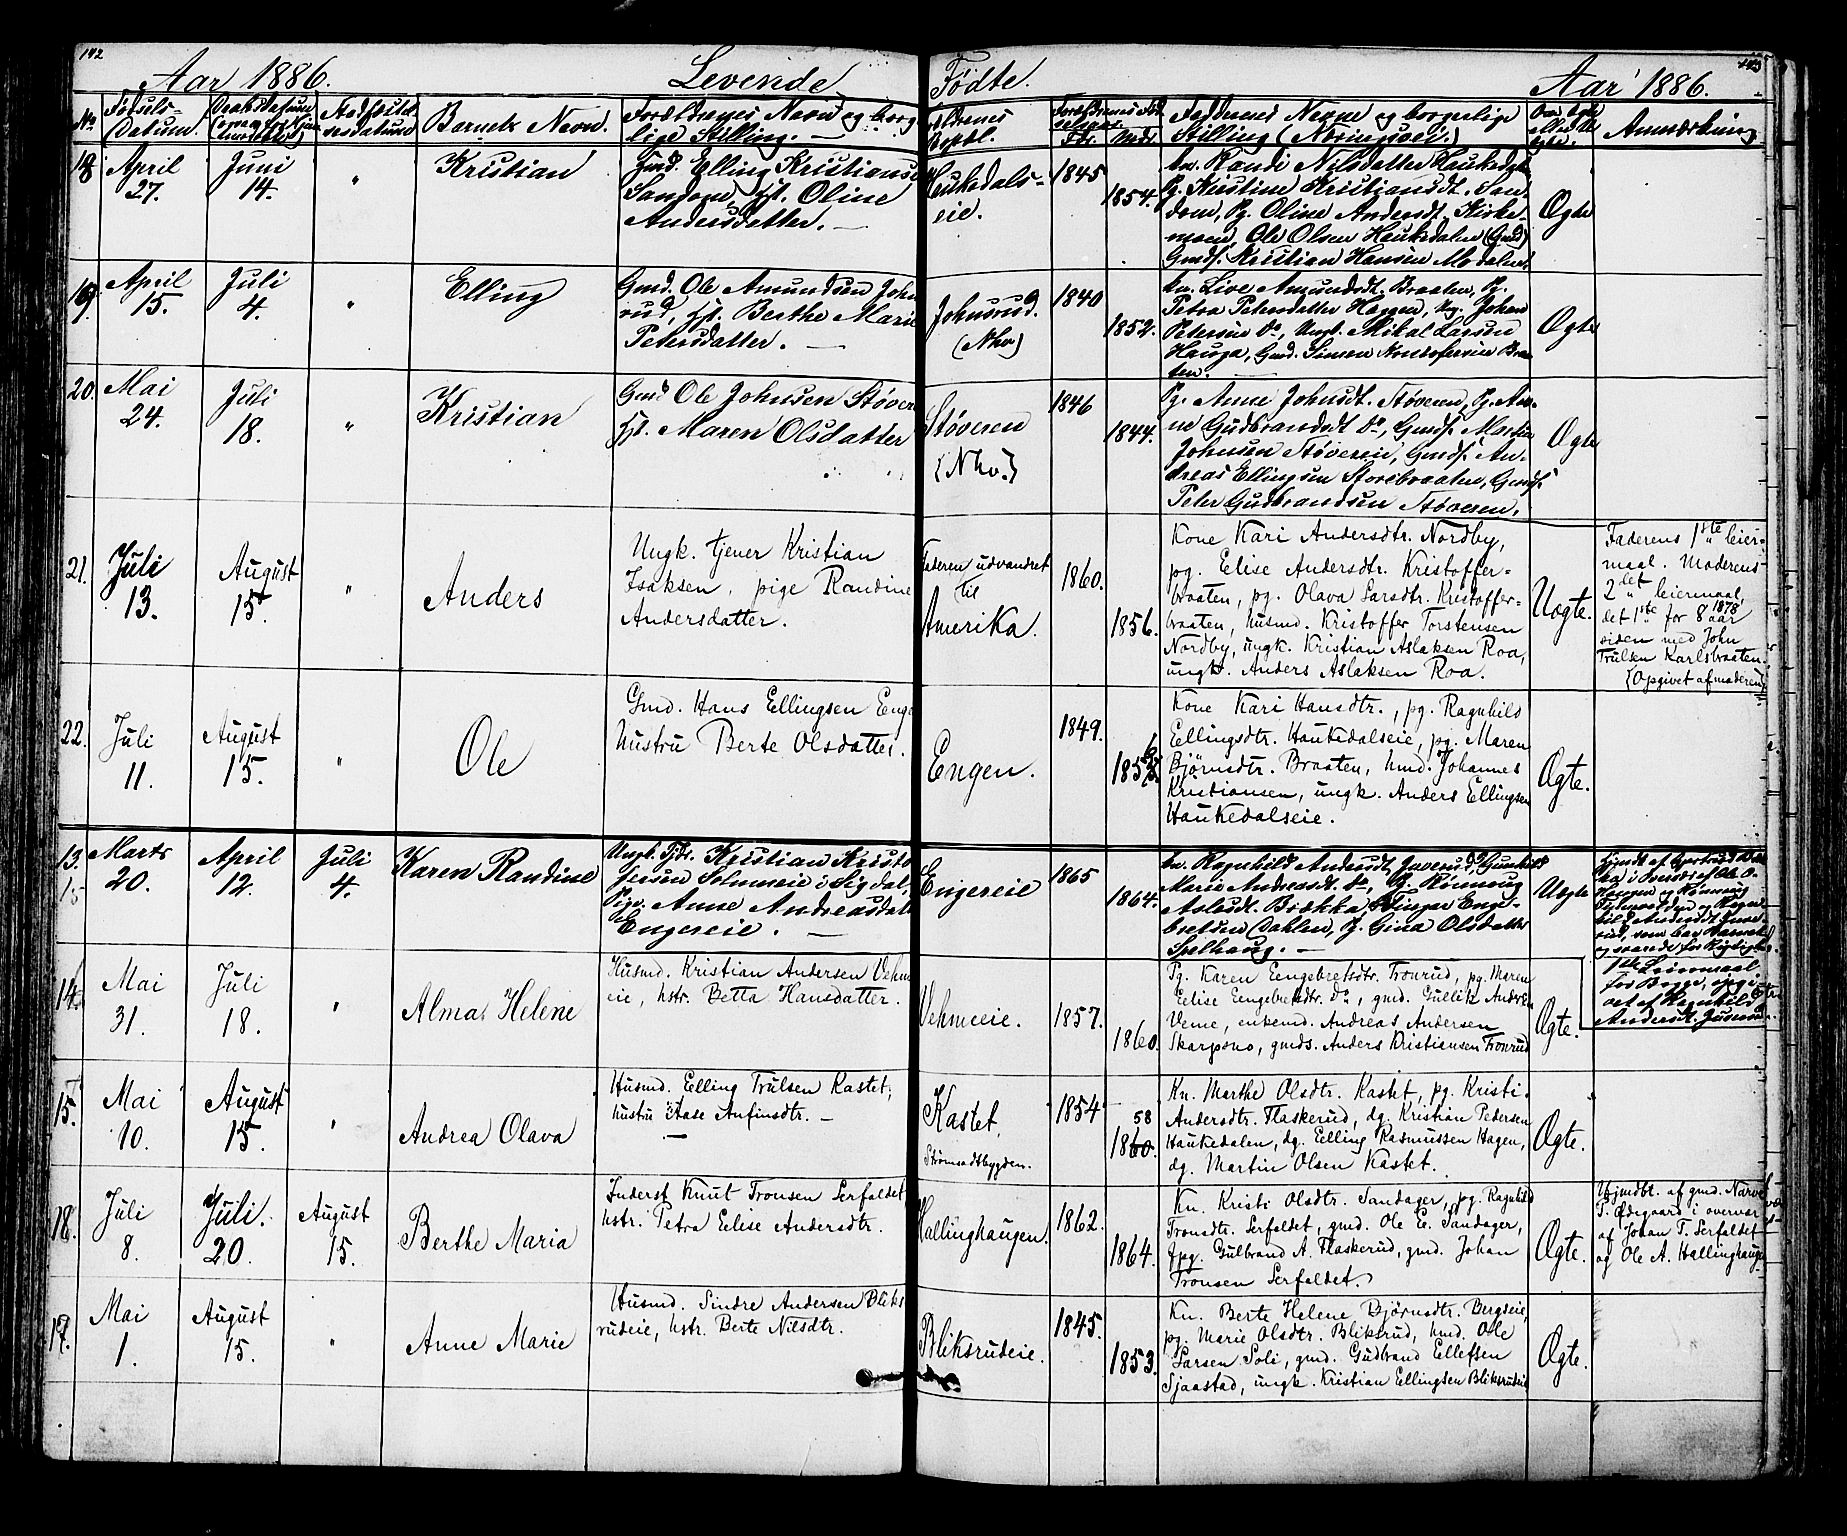 142
Aar 1886. Levende Fødte. Aar 1886.
No. Fødsels-Datum. Daabsdatum Stadfæstelsesdatum Barnets Navn. Forældrenes Navn og borgerlige Stilling. Forældrenes Bopæl. Forældrenes Fødselsaar. Fdr. Mdr. Faddernes Navne og borgerlige Stilling (Normgivet.) Om Ægte eller Uægte. Anmærkning
18 April 27. Juni 14. " Kristian
Gmd. Elling Kristiansen
Sandom, H. Oline
Andersdatter. —
Haukedals-
eie.
1845
1854.
kn. Randi Nilsdatter
Pg. Kristine Kristiansdt. San-
dom, Pg. Oline Andersdt. Kirke-
moen, Ole Olsen Haukedalen (Gmd)
Gmds. Kristian Hansen
Ægte
19. April 15. Juli 4. " Elling
Gmd. Ole Amundsen John
rud, H. Berthe Marie
Petersdatter. —
Johnsrud.
(Nho)
1840
1852.
kn. Live Amundsdt. Braaten, Pg.
Petra Petersdatter Haugen, Ug. Johan
Petersen Do, Ungk. Mikal Larsen
Hauga, Gmd. Simen
ten.
Ægte
20. Mai 24. Juli 18. " Kristian
Gmd Ole Johnsen Støveren
H. Maren Olsdatter
Støveren
{Nho.}
1846
1844.
Pg. Anne Johnsdt. Støveren, Pg. An-
ne Gudbrandsdt Do, Gmds. Martin
Johnsen Støveren, Gmds. An-
dreas Ellingsen Storebraaten, Gmds.
Peter Gudbrandsen Støveren.
Ægte
21. Juli 13. August 15. " Anders
Ungk. tjener Kristian
Isaksen, pige Randine
Andersdatter.
Faderen udvandret
til
Amerika.
1860.
1856.
Kone Kari Andersdtr. Nordby,
pg. Elise Andersdtr. Kristoffer-
braaten, pg. Olava Larsdtr. Kristoffer-
braaten, husmd. Kristoffer Torstensen
Nordby, ungk. Kristian Aslaksen Roa,
ungk. Anders Aslaksen Roa.
Uægte.
Faderens 1ste leier-
maal. Moderens
2det leiermaal,
det 1ste for 8 aar 1878
siden med John
Trulsen Karlsbraaten.
{Opgivet af moderen}
22. Juli 11. August 15. " Ole
Gmd. Hans Ellingsen Enge
hustru Berte Olsdatter.
Engen.
1849.
Kone Kari Hansdtr., pg. Ragnhild
Ellingsdtr. Haukedalseie, pg. Maren
Bjørnsdtr. Braaten, hmd. Johannes
Kristiansen, ungk. Anders Ellingsen
Haukedalseie.
Ægte.
13. Marts 20. April 12. Juli 4. Karen Randine
Ungk. Tj. Kristian Kristo
fersen Solumeie i Sigdal,
Pige. Anne Andreasdatter
Engereie. —
Engereie
1865
1864.
kn. Ragnhild Andersdt. Juverud, Gunhild
Marie Andreasdt. Do, Pg. Rønnoug
Aslesdt. Brekka, Engebretsen Dahlen, Pg. Gina Olsdatter
Spelhaug. —
Uægte
1ste Leiermaal
for Begge, opgi-
vet af Ragnhild
Andersdt. Juverud.
14. Mai 31. Juli 18. " Alma Helene
Husmd. Kristian Andersen Vehm
eie, hstr. Betta Hansdatter.
Vehmeeie.
1857.
1860.
Pg. Karen Eengebretsdtr. Tronrud, pg. Maren
Eelise Eengebretsdtr. Do, gmd. Gullik Andersen
Veme, enkemd. Andreas Andersen
Skarpsno, gmds. Anders Kristiansen Tronrud
Ægte.
15. Mai 10. August 15. " Andrea Olava
Husmd. Elling Trulsen Kastet,
hustru Aase Anfinsdtr. —
Kastet,
Strømsodtbygden.
1854
58
1860.
Kn. Marthe Olsdtr. Kastet, pg. Kristi
Andersdtr. Flaskerud, dg. Kristian Pedersen
Haukedalen, dg. Eelling Rasmussen Hagen,
dg. Martin Olsen Kastet.
Ægte.
18. Juli 8. Juli. 20. August 15. Berthe Maria
Inderst Knut Tronsen Serfaldet
hstr. Petra Elise Andersdtr.
Hallinghaugen.
1862.
1864.
Kn. Kristi Olsdtr. Sandager, pg. Ragnhild
Tronsdtr. Serfaldet, gmd. Ole E. Sandager,
fpg. Gulbrand A. Flaskerud, gmd. Johan
Tronsen Serfaldet.
Ægte.
Hjmdbt. af gmd. Narve
T. Ødegaard i overvær
af Johan T. Serfaldet
og Ole A. Hallinghaugen
17. Mai 1. August 15. " Anne Marie
Husmd. Sindre Andersen Bliks
rudeie, hstr. Berte Nilsdtr.
Bliksrudeie.
1845.
1853.
Kn. Berte Helene Bjørnsdtr. Bergseie,
pg. Marie Olsdtr. Bliksrud, hmd. Ole
Larsen Soli, gmd. Gudbrand Ellefsen
Sjaastad, ungk. Kristian Ellingsen Bliksrudeie
Ægte.